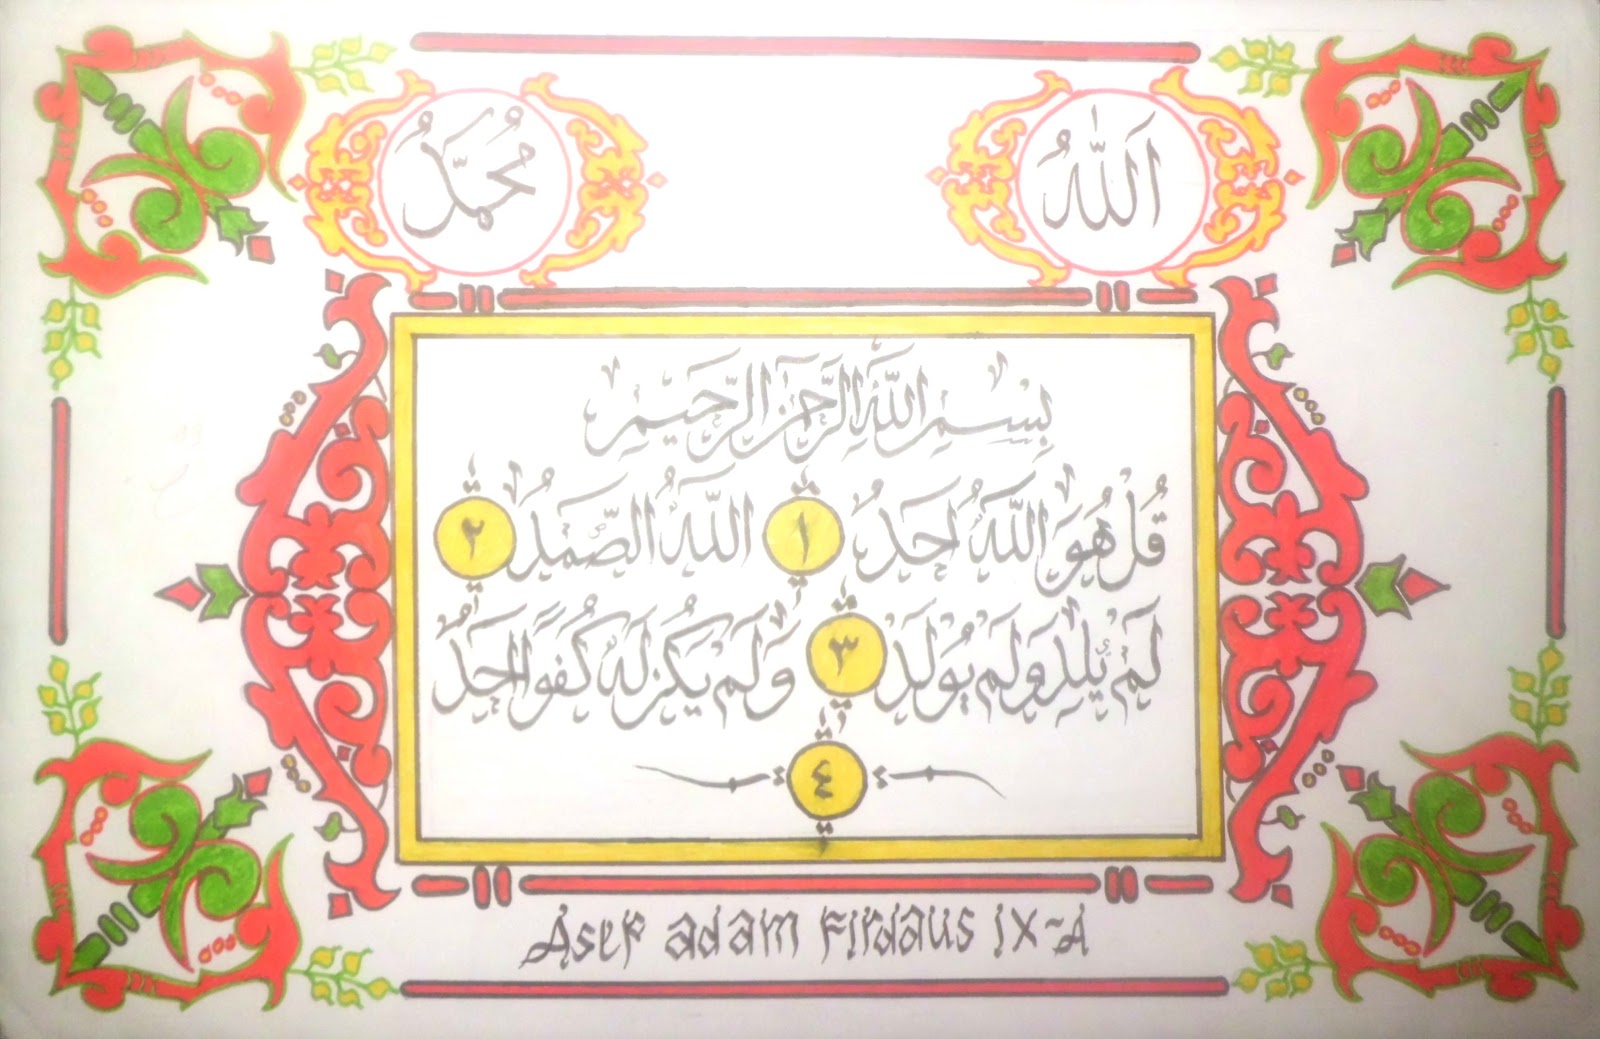 اَللّٰهُ مُحَمَّدُ
بِسْمِ اللّٰهِ الرَّحْمٰنِ الرَّحِيْمِ
قُلْ هُوَ اللّٰهُ اَحَدٌ ١ اَللّٰهُ الصَّمَدُ ٢
لَمْ يَلِدْ وَلَمْ يُوْلَدْ ٣ وَلَمْ يَكُنْ لَهُ كُفُوًا اَحَدٌ
٤
Asep adam Firdaus IX-A